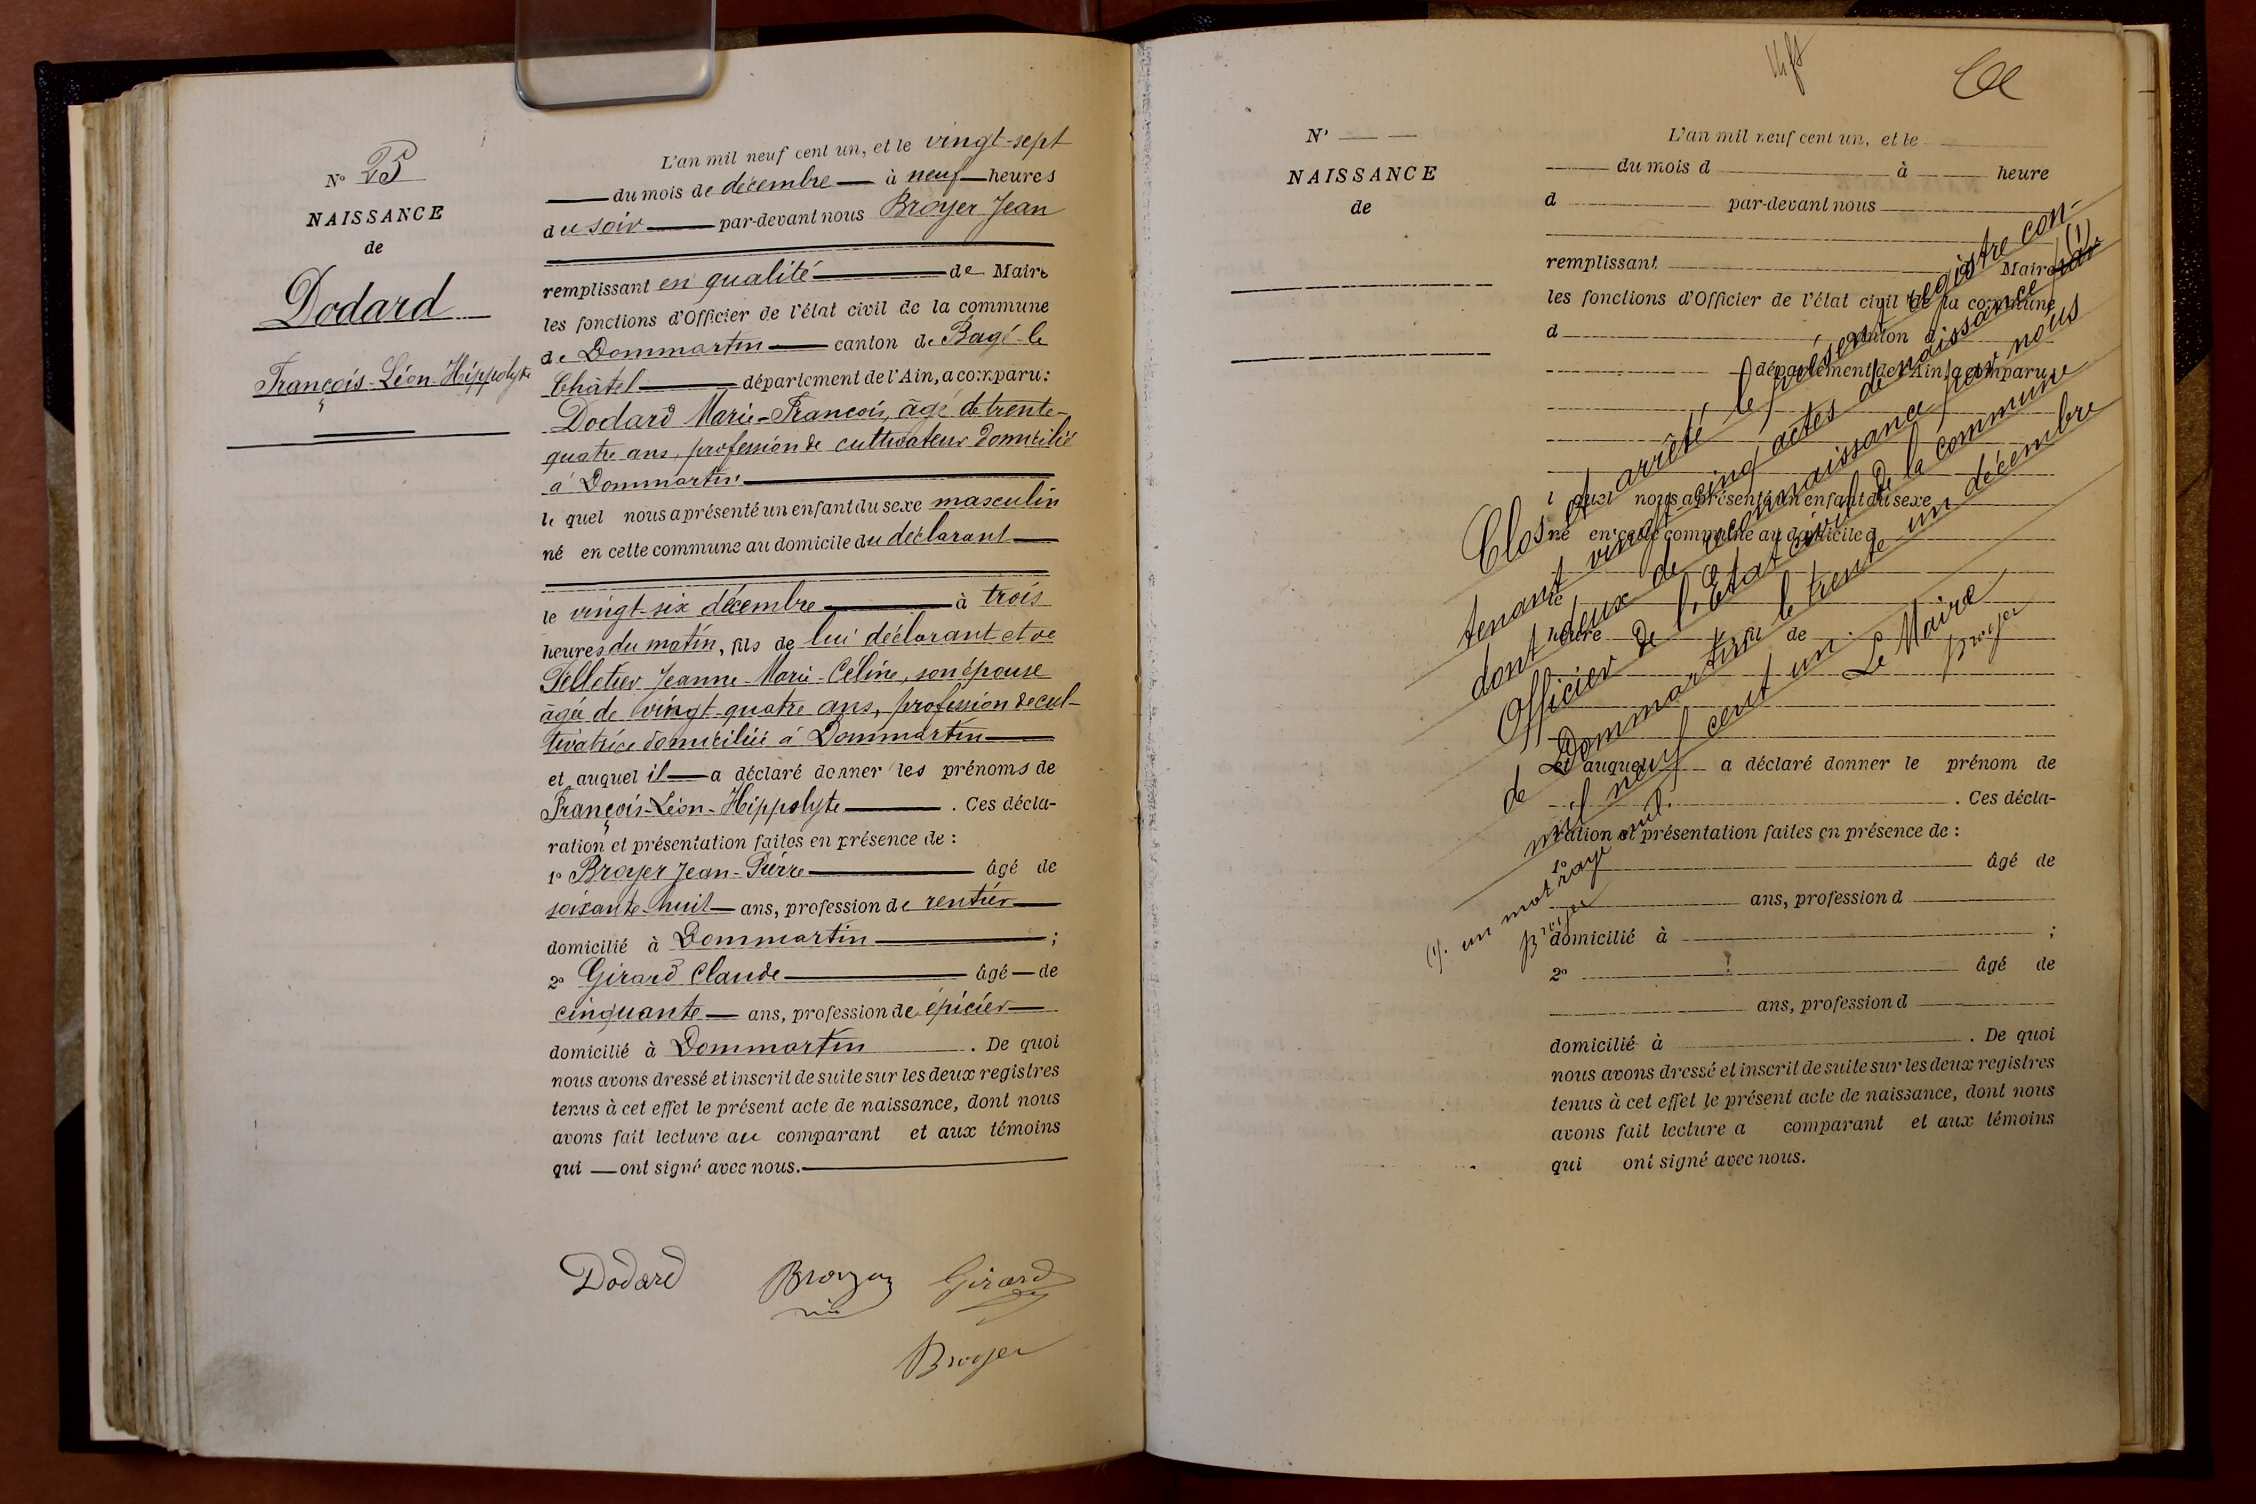 N° 25
NAISSANCE
de
Dodard
François-Léon-Hippolyte
L'an mil neuf cent un, et le vingt-sept
du mois de décembre à neuf heures
du soir par-devant nous Broyer Jean
remplissant en qualité de Maire
les fonctions d'Officier de l'état civil de la commune
de Dommartin canton de Bagé-le
Châtel département de l'Ain, a comparu:
Dodard Marie-François, âgé de trente-
quatre ans, profession de cultivateur domicilié
à Dommartin
le quel nous a présenté un enfant du sexe masculin
né en cette commune au domicile du déclarant
le vingt-six décembre à trois
heures du matin, fils de lui déclarant et de
Pelletier Jeanne-Marie-Céline, son épouse
âgée de vingt-quatre ans, profession de cul-
tivatrice domiciliée à Dommartin
et auquel il a déclaré donner les prénoms de
François-Léon-Hippolyte. Ces décla-
ration et présentation faites en présence de:
1° Broyer Jean-Pierre âgé de
soixante-huit ans, profession de rentier
domicilié à Dommartin;
2° Girard Claude âgé de
cinquante ans, profession de épicier
domicilié à Dommartin. De quoi
nous avons dressé et inscrit de suite sur les deux registres
tenus à cet effet le présent acte de naissance, dont nous
avons fait lecture au comparant et aux témoins
qui ont signé avec nous.
Dodard Broyer Girard
Broyer
N°
NAISSANCE
de
L'an mil neuf cent un, et le
du mois d à heure
d par-devant nous
remplissant Maire
les fonctions d'Officier de l'état civil de la commune
d canton d
département de l'Ain, a comparu:
l quel nous a présenté un enfant du sexe
né en cette commune au domicile d
le
heure fil de
et auquel a déclaré donner le prénom de
. Ces décla-
ration et présentation faites en présence de:
1° âgé de
ans, profession d
domicilié à ;
2° âgé de
ans, profession d
domicilié à . De quoi
nous avons dressé et inscrit de suite sur les deux registres
tenus à cet effet le présent acte de naissance, dont nous
avons fait lecture a comparant et aux témoins
qui ont signé avec nous.
Clos et arrêté le présent registre con-
tenant vingt-cinq actes de naissance par (1)
dont deux de reconnaissance par nous
Officier de l'Etat civil de la commune
de Dommartin le trente un décembre
mil neuf cent un.
Le Maire
Broyer
(1). un mot rayé nul.
Broyer